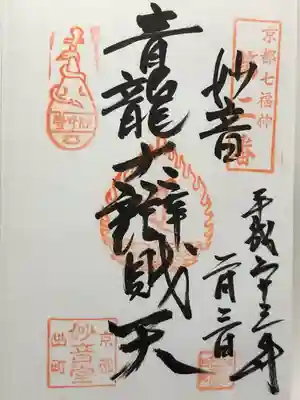 京都七福神
妙音
平成二十三年
青龍大辯財天
京都
妙音堂
出町